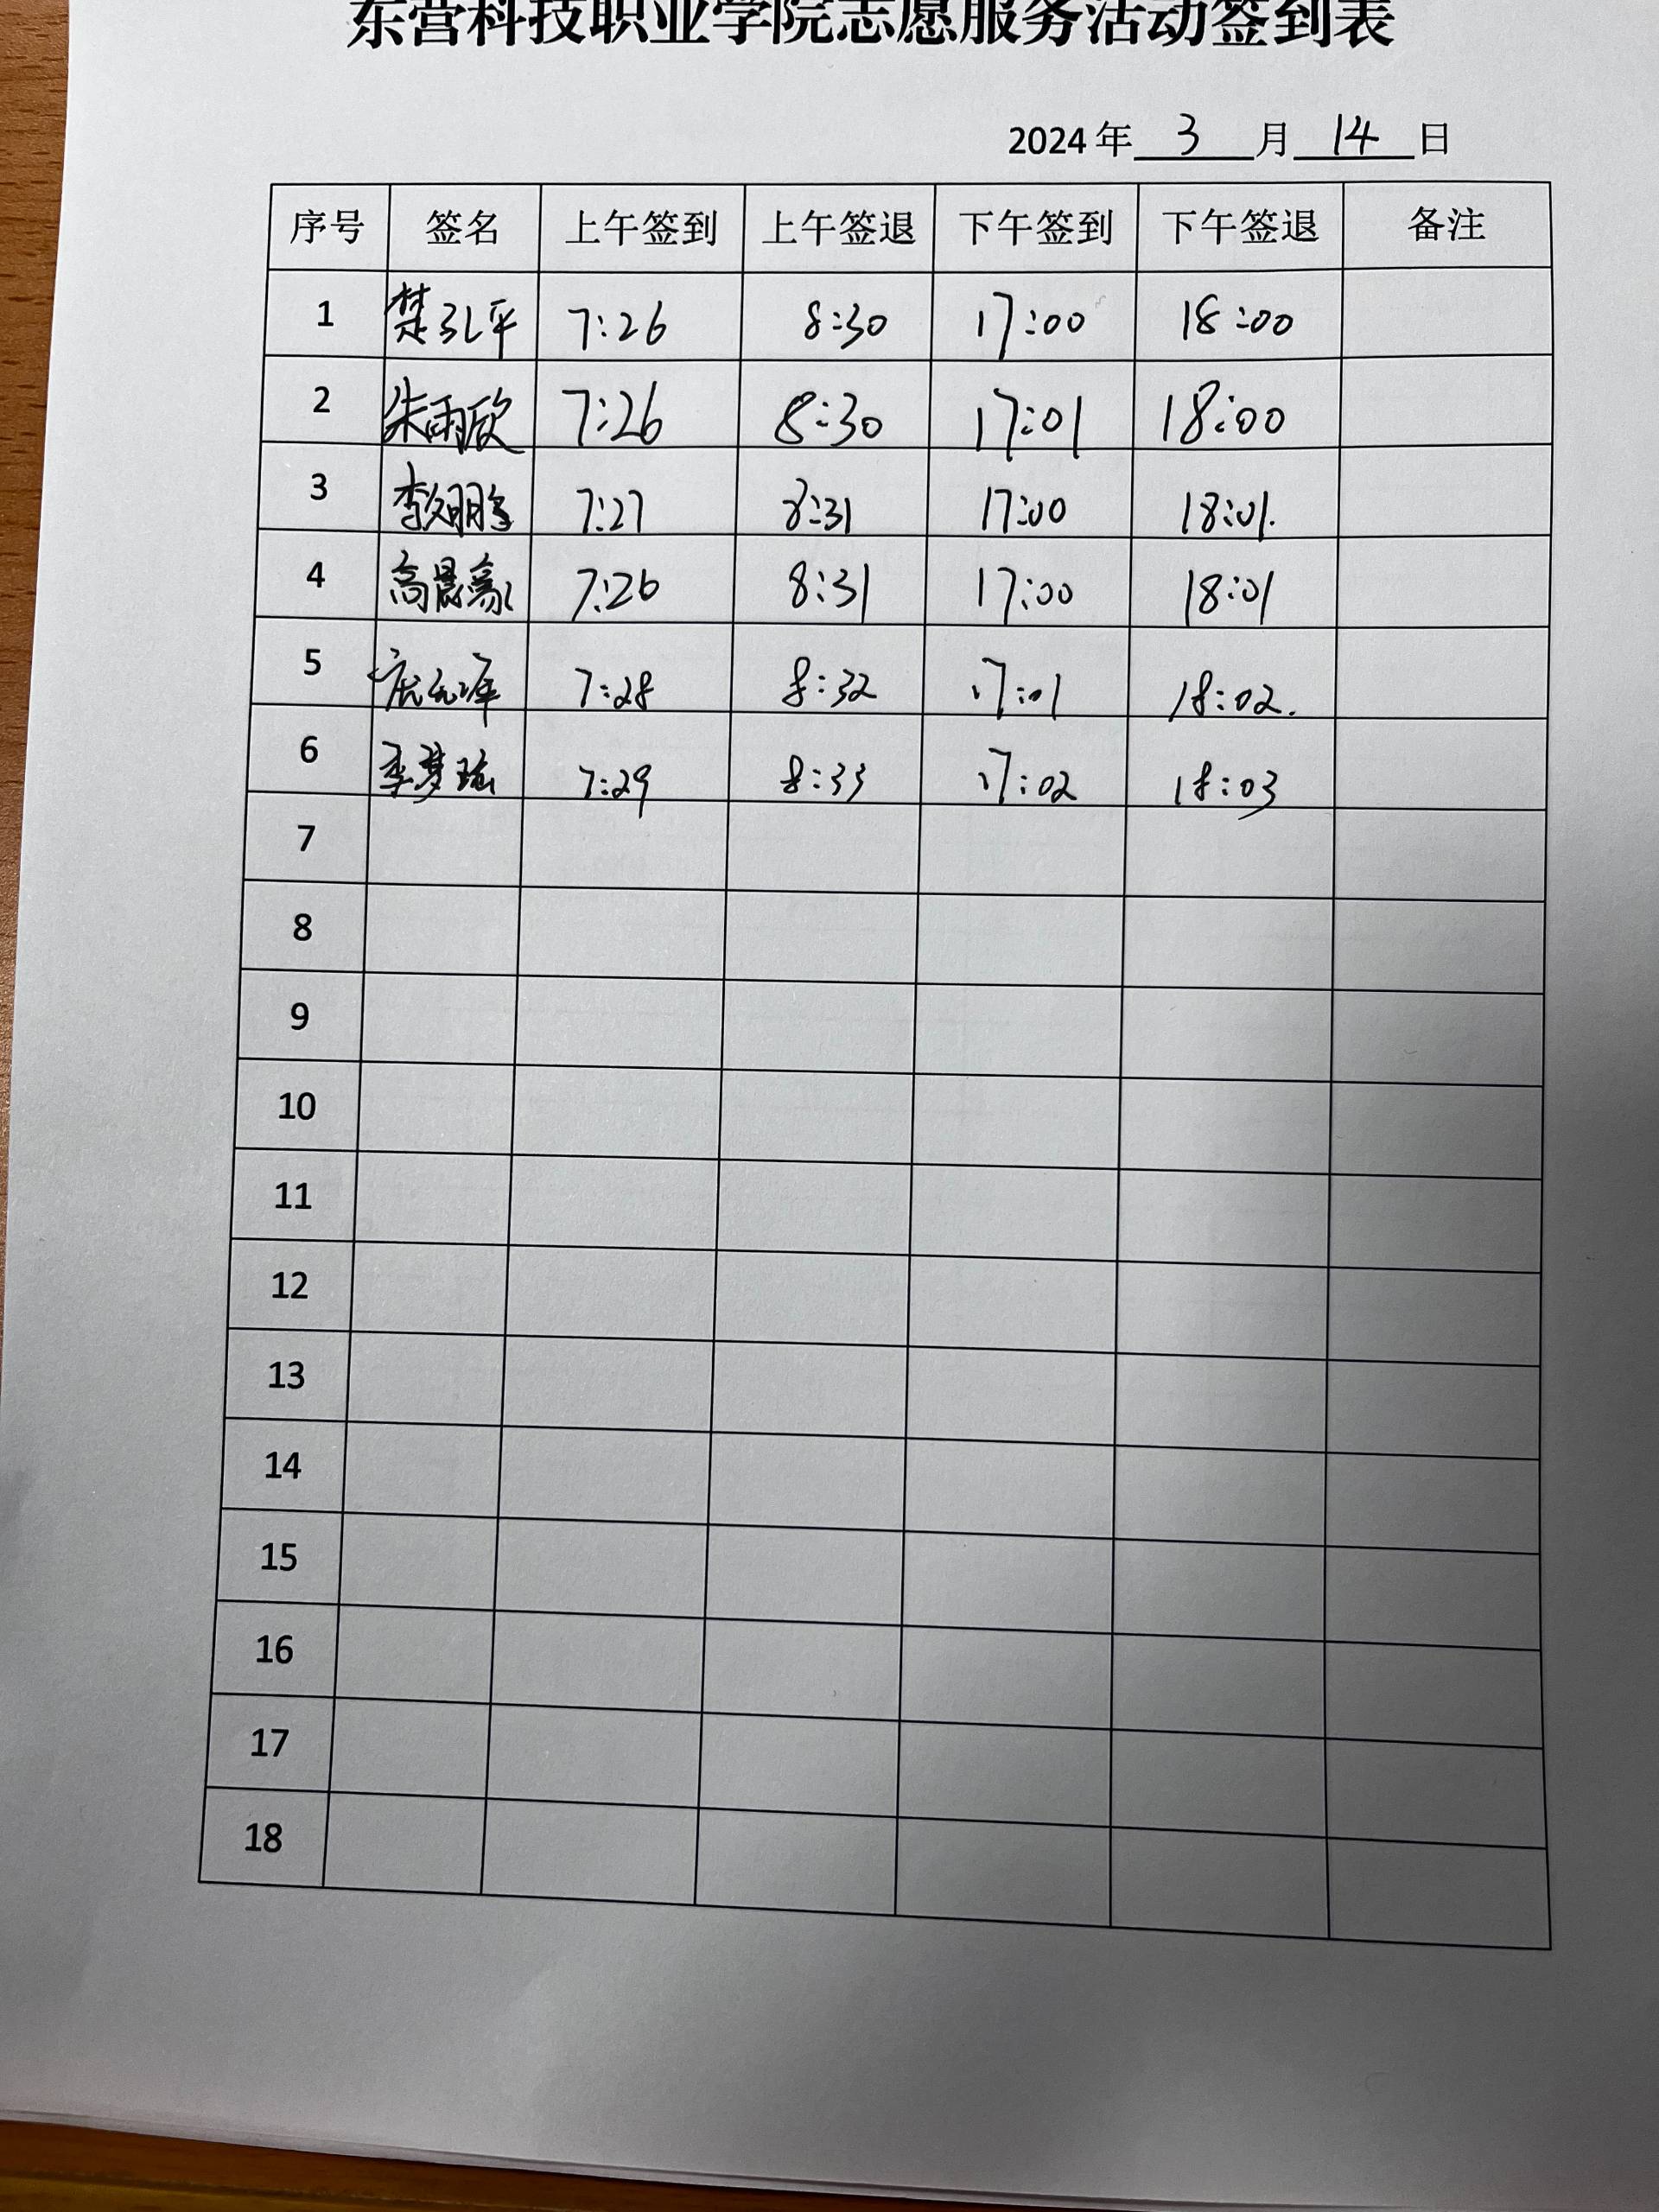 东营科技职业学院志愿服务活动签到表
2024年 3 月 14 日
序号 签名 上午签到 上午签退 下午签到 下午签退 备注
1 楚孔平 7:26 8:30 17:00 18:00
2 朱雨欣 7:26 8:30 17:01 18:00
3 7:27 8:31 17:00 18:01.
4 高晨豪 7:26 8:31 17:00 18:01
5 7:28 8:32 17:01 18:02.
6 李梦瑶 7:29 8:33 17:02 18:03
7
8
9
10
11
12
13
14
15
16
17
18